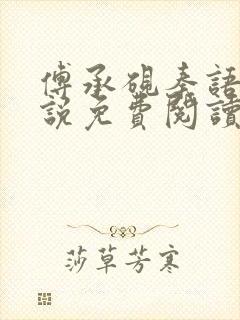 傅承硯秦語
說免費閱讀
莎草芳寒